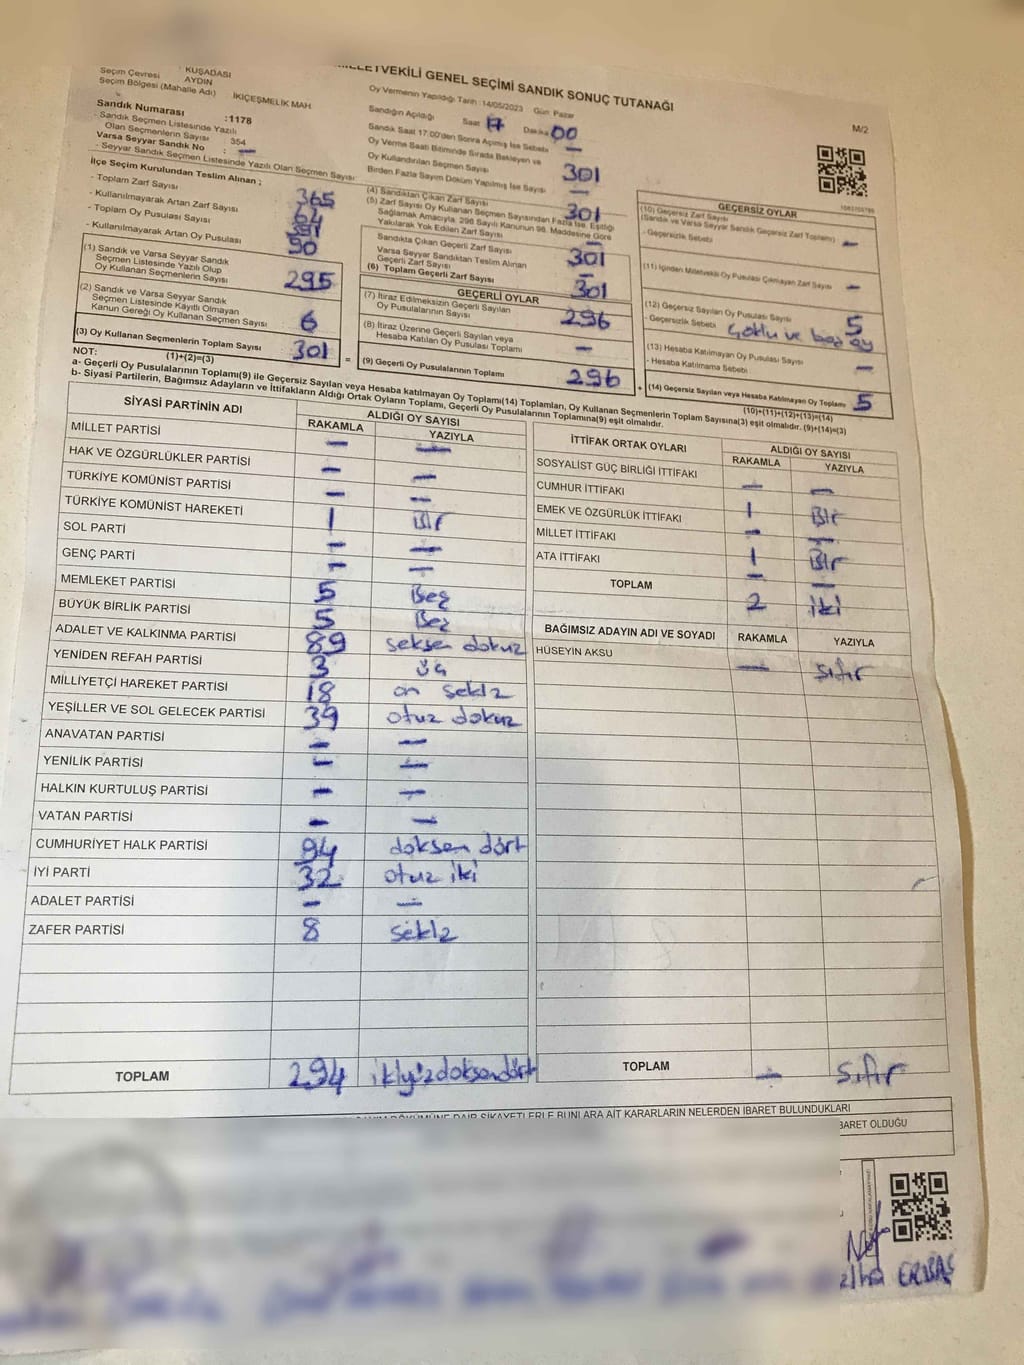 MİLLETVEKİLİ GENEL SEÇİMİ SANDIK SONUÇ TUTANAĞI
M/2
Seçim Çevresi : KUŞADASI
AYDIN
Seçim Bölgesi (Mahalle Adı) İKİÇEŞMELİK MAH
Sandık Numarası :1178
- Sandık Seçmen Listesinde Yazılı
Olan Seçmenlerin Sayısı : 354
Varsa Seyyar Sandık No : —
- Seyyar Sandık Seçmen Listesinde Yazılı Olan Seçmen Sayısı:
İlçe Seçim Kurulundan Teslim Alınan ;
- Toplam Zarf Sayısı 365
- Kullanılmayarak Artan Zarf Sayısı 64
- Toplam Oy Pusulası Sayısı
- Kullanılmayarak Artan Oy Pusulası
(1) Sandık ve Varsa Seyyar Sandık
Seçmen Listesinde Yazılı Olup
Oy Kullanan Seçmenlerin Sayısı 295
(2) Sandık ve Varsa Seyyar Sandık
Seçmen Listesinde Kayıtlı Olmayan
Kanun Gereği Oy Kullanan Seçmen Sayısı 6
(3) Oy Kullanan Seçmenlerin Toplam Sayısı 301
(1)+(2)=(3)
Oy Vermenin Yapıldığı Tarih :14/05/2023 Gün: Pazar
Sandığın Açıldığı Saat 17 Dakika 00
Sandık Saat 17:00'den Sonra Açılmış İse Sebebi —
Oy Verme Saati Bitiminde Sırada Bekleyen ve
Oy Kullandırılan Seçmen Sayısı 301
Birden Fazla Sayım Döküm Yapılmış İse Sayısı —
(4) Sandıktan Çıkan Zarf Sayısı 301
(5) Zarf Sayısı Oy Kullanan Seçmen Sayısından Fazla İse, Eşitliği
Sağlamak Amacıyla, 298 Sayılı Kanunun 98. Maddesine Göre
Yakılarak Yok Edilen Zarf Sayısı —
Sandıkta Çıkan Geçerli Zarf Sayısı 301
Varsa Seyyar Sandıktan Teslim Alınan
Geçerli Zarf Sayısı —
(6) Toplam Geçerli Zarf Sayısı 301
GEÇERLİ OYLAR
(7) İtiraz Edilmeksizin Geçerli Sayılan
Oy Pusulalarının Sayısı 296
(8) İtiraz Üzerine Geçerli Sayılan veya
Hesaba Katılan Oy Pusulası Toplamı —
= (9) Geçerli Oy Pusulalarının Toplamı 296
GEÇERSİZ OYLAR
(10) Geçersiz Zarf Sayısı
(Sandık ve Varsa Seyyar Sandık Geçersiz Zarf Toplamı) —
- Geçersizlik Sebebi
(11) İçinden Milletvekili Oy Pusulası Çıkmayan Zarf Sayısı —
(12) Geçersiz Sayılan Oy Pusulası Sayısı 5
- Geçersizlik Sebebi Çoklu ve boş oy
(13) Hesaba Katılmayan Oy Pusulası Sayısı —
- Hesaba Katılmama Sebebi
+ (14) Geçersiz Sayılan veya Hesaba Katılmayan Oy Toplamı 5
(10)+(11)+(12)+(13)=(14)
NOT:
a- Geçerli Oy Pusulalarının Toplamı(9) ile Geçersiz Sayılan veya Hesaba katılmayan Oy Toplamı(14) Toplamları, Oy Kullanan Seçmenlerin Toplam Sayısına(3) eşit olmalıdır. (9)+(14)=(3)
b- Siyasi Partilerin, Bağımsız Adayların ve İttifakların Aldığı Ortak Oyların Toplamı, Geçerli Oy Pusulalarının Toplamına(9) eşit olmalıdır.
SİYASİ PARTİNİN ADI ALDIĞI OY SAYISI
RAKAMLA YAZIYLA
MİLLET PARTİSİ — —
HAK VE ÖZGÜRLÜKLER PARTİSİ — —
TÜRKİYE KOMÜNİST PARTİSİ — —
TÜRKİYE KOMÜNİST HAREKETİ 1 Bir
SOL PARTİ — —
GENÇ PARTİ — —
MEMLEKET PARTİSİ 5 Beş
BÜYÜK BİRLİK PARTİSİ 5 Beş
ADALET VE KALKINMA PARTİSİ 89 seksen dokuz
YENİDEN REFAH PARTİSİ 3 üç
MİLLİYETÇİ HAREKET PARTİSİ 18 on sekiz
YEŞİLLER VE SOL GELECEK PARTİSİ 39 otuz dokuz
ANAVATAN PARTİSİ — —
YENİLİK PARTİSİ — —
HALKIN KURTULUŞ PARTİSİ — —
VATAN PARTİSİ — —
CUMHURİYET HALK PARTİSİ 94 doksan dört
İYİ PARTİ 32 otuz iki
ADALET PARTİSİ — —
ZAFER PARTİSİ 8 sekiz
TOPLAM 294 ikiyüzdoksandört
İTTİFAK ORTAK OYLARI ALDIĞI OY SAYISI
RAKAMLA YAZIYLA
SOSYALİST GÜÇ BİRLİĞİ İTTİFAKI — —
CUMHUR İTTİFAKI 1 Bir
EMEK VE ÖZGÜRLÜK İTTİFAKI — —
MİLLET İTTİFAKI 1 Bir
ATA İTTİFAKI — —
TOPLAM 2 iki
BAĞIMSIZ ADAYIN ADI VE SOYADI RAKAMLA YAZIYLA
HÜSEYİN AKSU — sıfır
TOPLAM — sıfır
DÖKÜMÜNE DAİR ŞİKAYETLERLE BUNLARA AİT KARARLARIN NELERDEN İBARET BULUNDUKLARI
BARET OLDUĞU
ERBAŞ